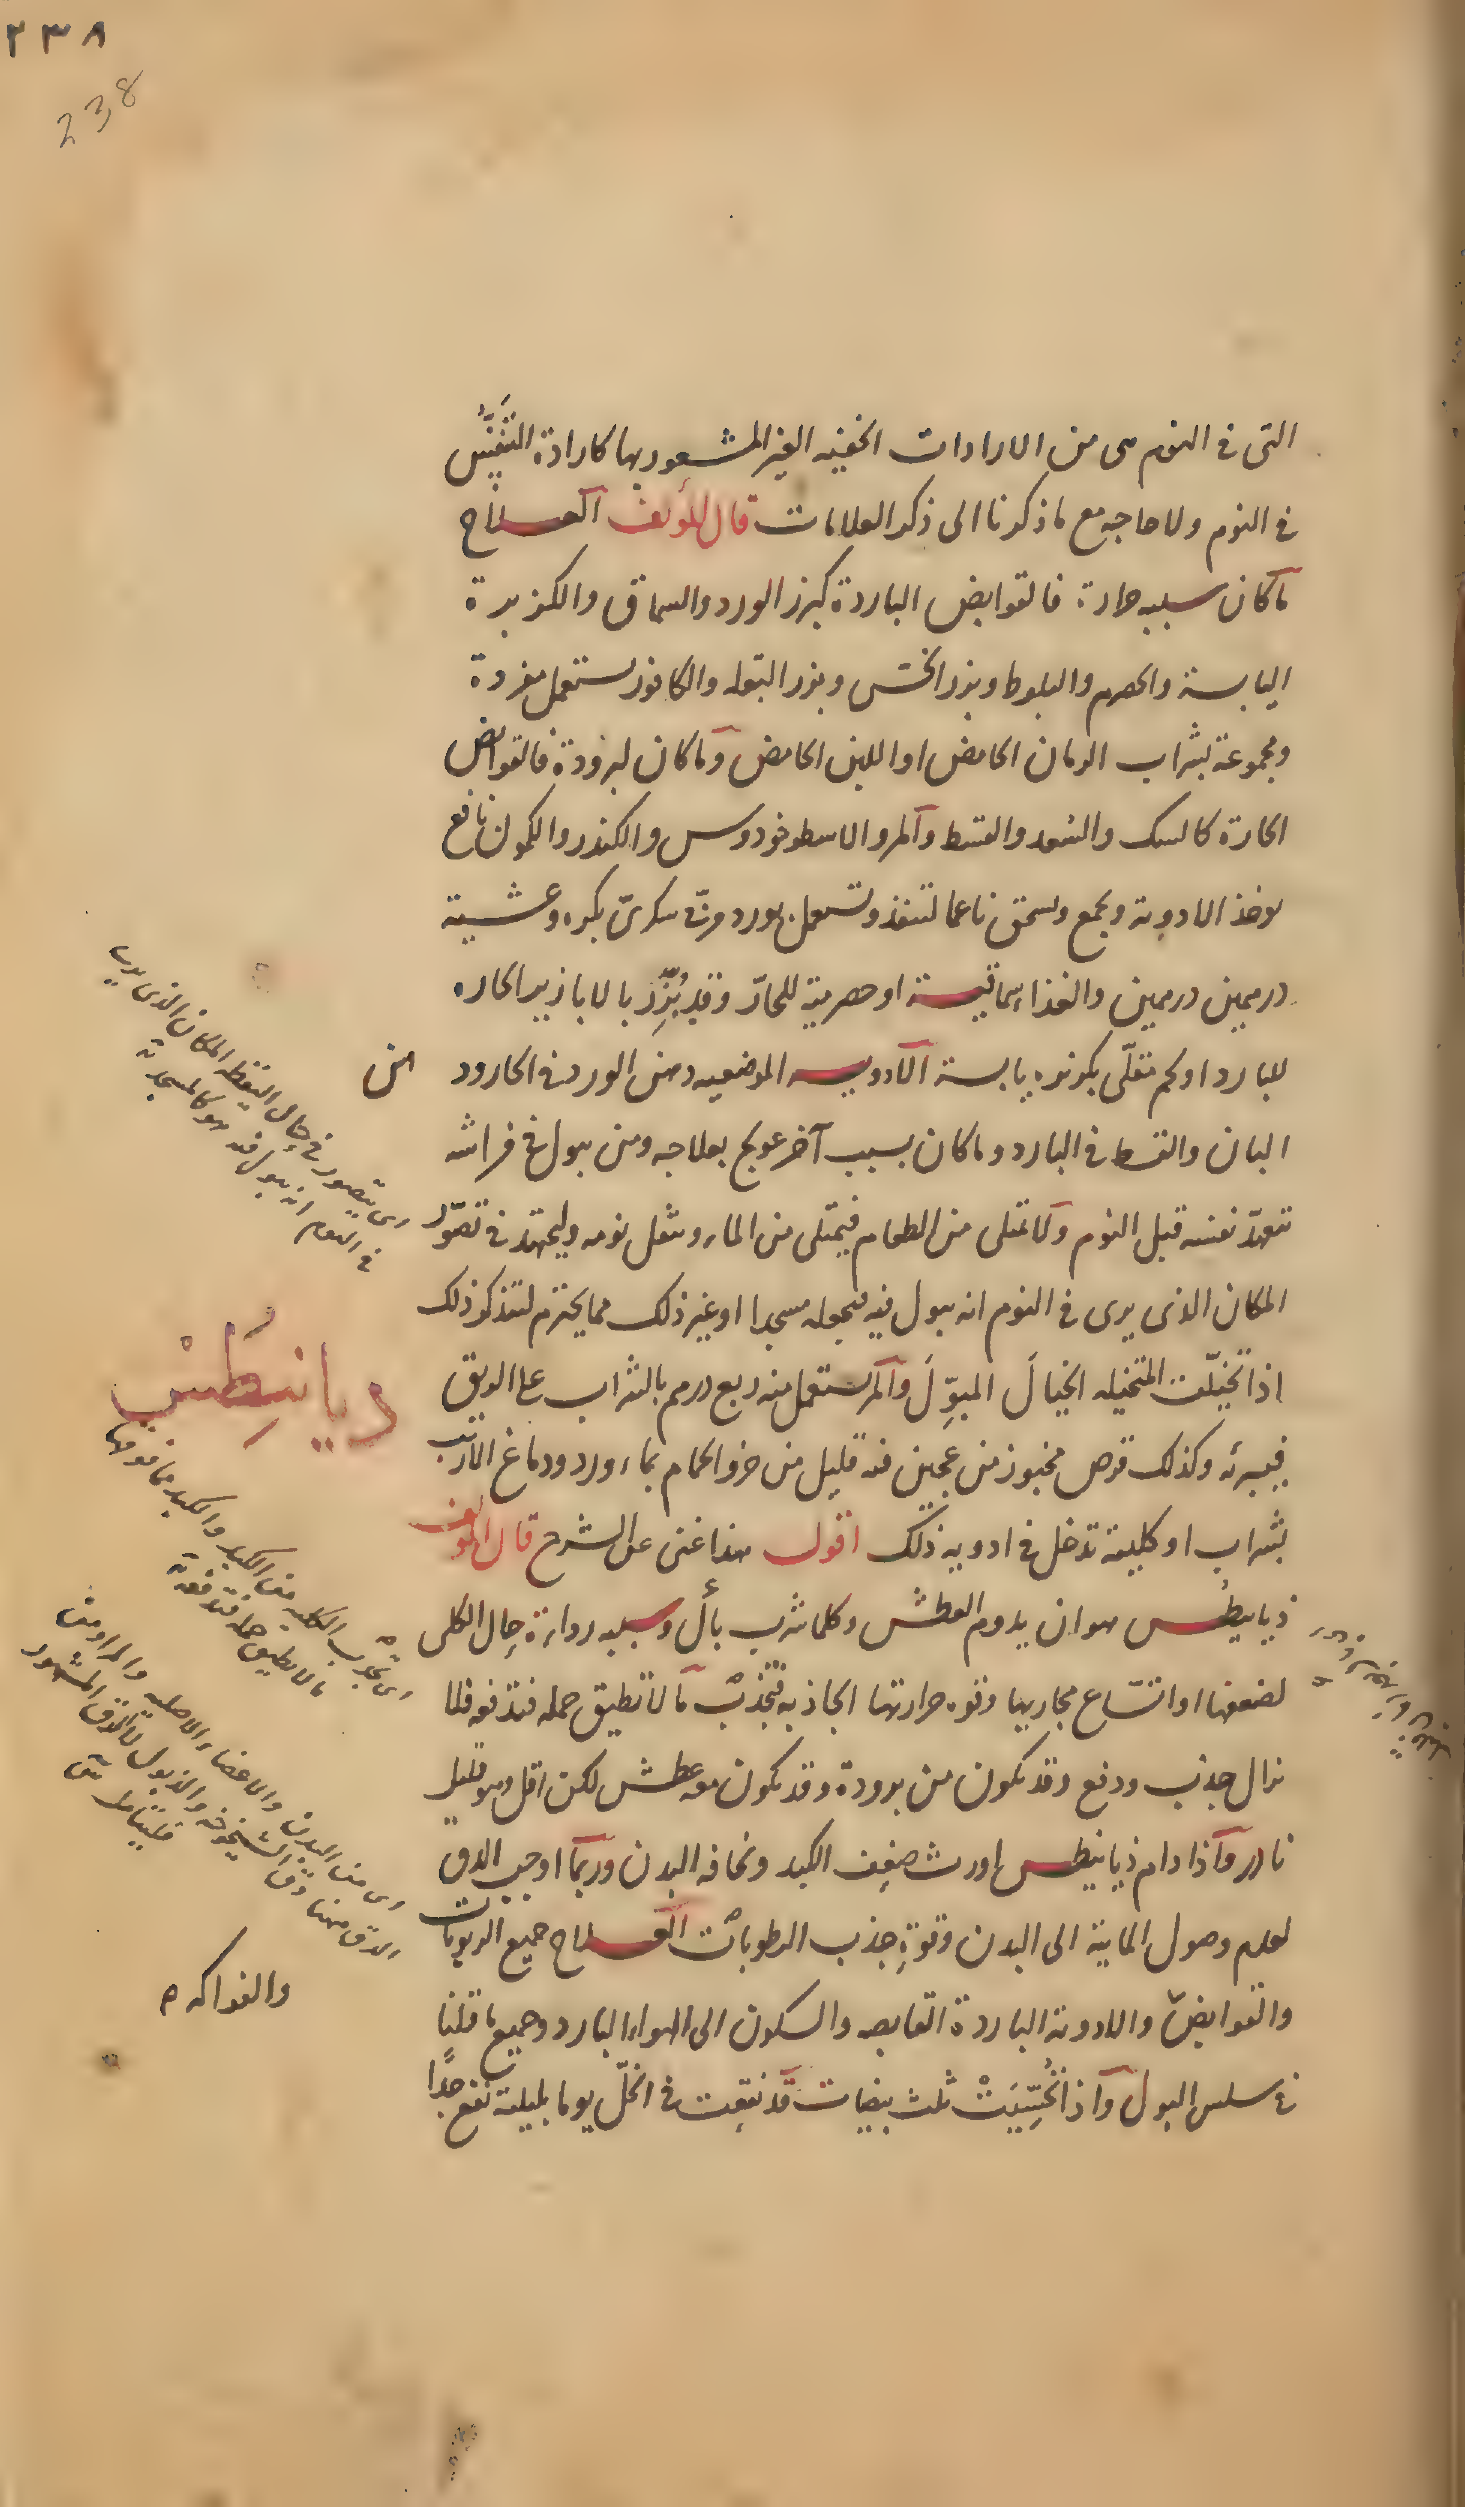 ٢٣٨
238
التى فى النوم هى من الارادات الخفيه الغير المشعور بها كارادة التنفس
فى النوم ولا حاجه مع ما ذكرنا الى ذكر العلامات قال المؤلف العلاج
ما كان سببه حرارة فالقوابض الباردة كبزر الورد والسماق والكزبرة
اليابسة والحصرم والبلوط وبزر الخس وبزر البقله والكافور يستعمل مفردة
ومجموعة بشراب الرمان الحامض او اللبن الحامض وما كان لبرودة فالقوابض
الحارة كالسك والسعد والقسط والمر والاسطوخودوس والكندر والكمون نافع
يوخذ الادوية ويجمع ويسحق ناعما لتنفذ وتستعمل بورد مربّى سكرىّ بكره وعشية
درهمين درهمين والغذاء سماقية او حصرمية للحارّ وقد يُبَزَّر بالابازير الحاره
للبارد او لحم مقلّى بكزبره يابسة الادويه الموضعيه دهن الورد فى الحار ود
هن
البان والقسط فى البارد وما كان بسبب آخر عولج بعلاجه ومن يبول فى فراشه
تعهدّ نفسه قبل النوم ولا تمتلى من الطعام فيمتلى من الماء ويثقل نومه وليجتهد فى تصوّر
المكان الذى يرى فى النوم انه يبول فيه فيجعله مسجدا او غير ذلك مما يحترم لتذكر ذلك
اذا تخيّلت المتخيله الخيالَ المبوِّلَ والمر يستعمل منه ربع درهم بالشراب على الريق
فيبرئه وكذلك قرص مخبوز من عجين فيه قليل من خرو الحمام بماء ورد ودماغ الارنب
بشراب او كليته تدخل فى ادويه ذلك اقول هذا غنى عن الشرح قال المؤلف
ذيانيطس هو ان يدوم العطش وكلما شرب بأل وسببه رداءة حال الكلى
لضعفها او اتساع مجاريها وقوه حرارتها الجاذبه فتجذب ما لا تطيق حمله فتدفعه فلا
نزال جذب ودفع وقد يكون من برودة وقد يكون معه عطش لكن اقل وهو قليل
نادر واذا دام ذيانيطس اورث ضعف الكبد ونحافه البدن وربما اوجب الدق
لعدم وصول المائية الى البدن وقوةِ جذب الرطوبات العلاج جميع الربوبات
والفواكه
والقوابض والادوية الباردة القابضه والسكون الى الهواء البارد وجميع ما قلنا
فى سلس البول واذا تُحُسِّيَتْ ثلث بيضات قد نقعت فى الخلّ يوما بليلته نفع جدًا
اى يتصور فى حال اليقظه المكان الذى يرى
فى النوم انه يبول فيه هو كالمسجد
ديانيطس
اى تجذب الكليه من الكبد والكبد مما فوقها
ما لا يطيق حمله فتدفعه
اى من البدن والاعضاء الاصليه والمراد من
الدق ههنا دق الشيخوخه والذبول لا الدق المشهور